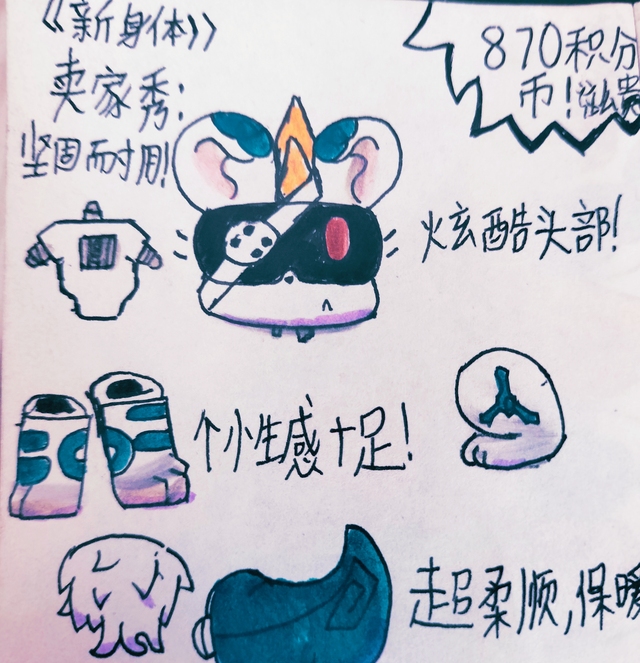 《新身体》
卖家秀:
坚固而耐用!
870积分
币!
炫酷头部!
个小性感十足!
超柔顺,保暖